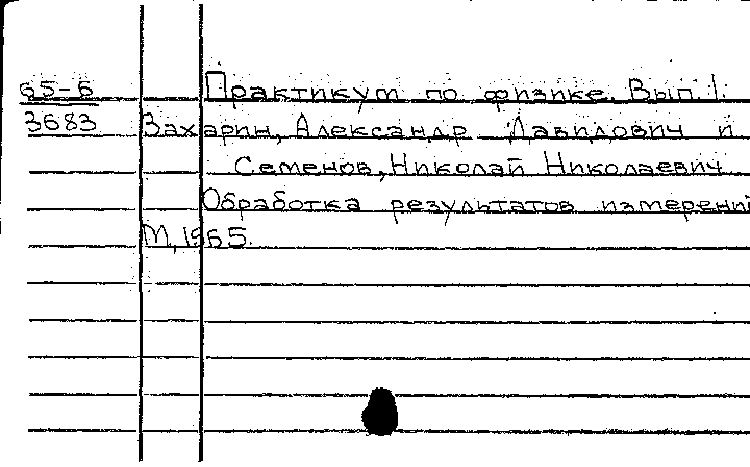 65-6 Практикум по физике. Вып. 1.
3683 Захарин, Александр Давидович и
Семенов, Николай Николаевич
Обработка результатов измерений
М, 1965.